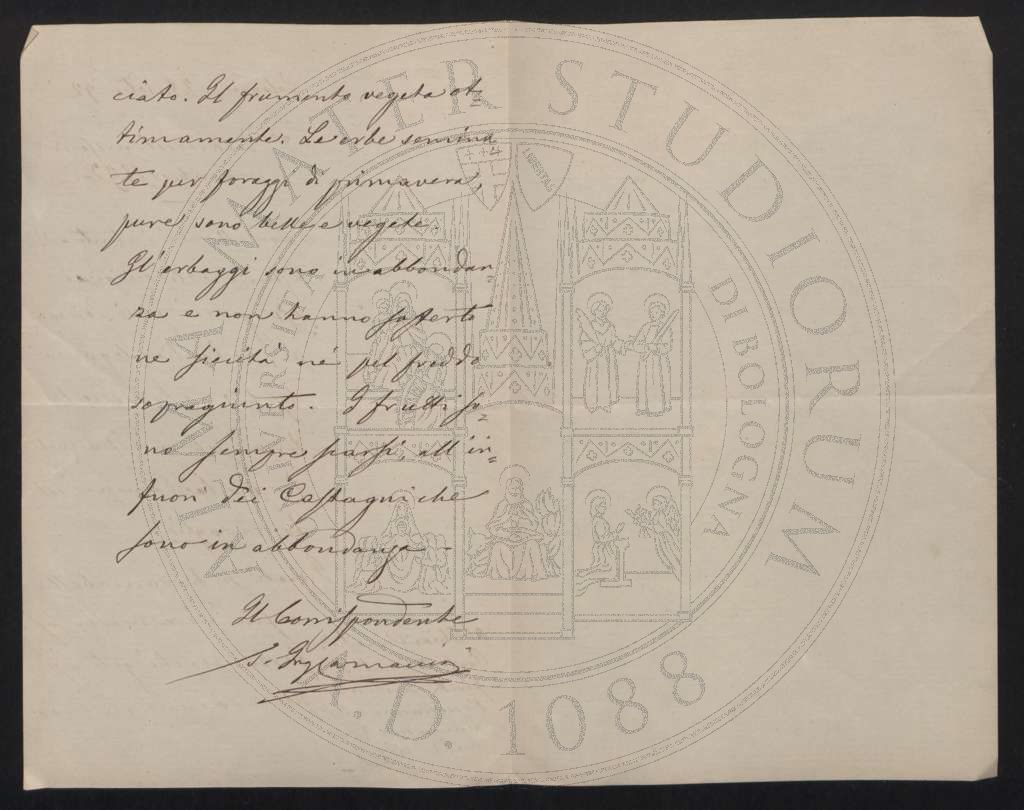 ciato. Il frumento vegeta ot=
timamente. Le erbe semina=
te per foraggi di primavera,
pure sono belle e vegete.
Gl'erbaggi sono in abbondan=
za e non hanno sofferto
ne siccità né pel freddo
sopragiunto. I frutti so=
no sempre scarsi, all'in=
fuori dei Castagni che
sono in abbondanza -
Il Corrispondente
ALMA MATER STUDIORUM
UNIVERSITÀ DI BOLOGNA
LIBERTAS
A.D. 1088